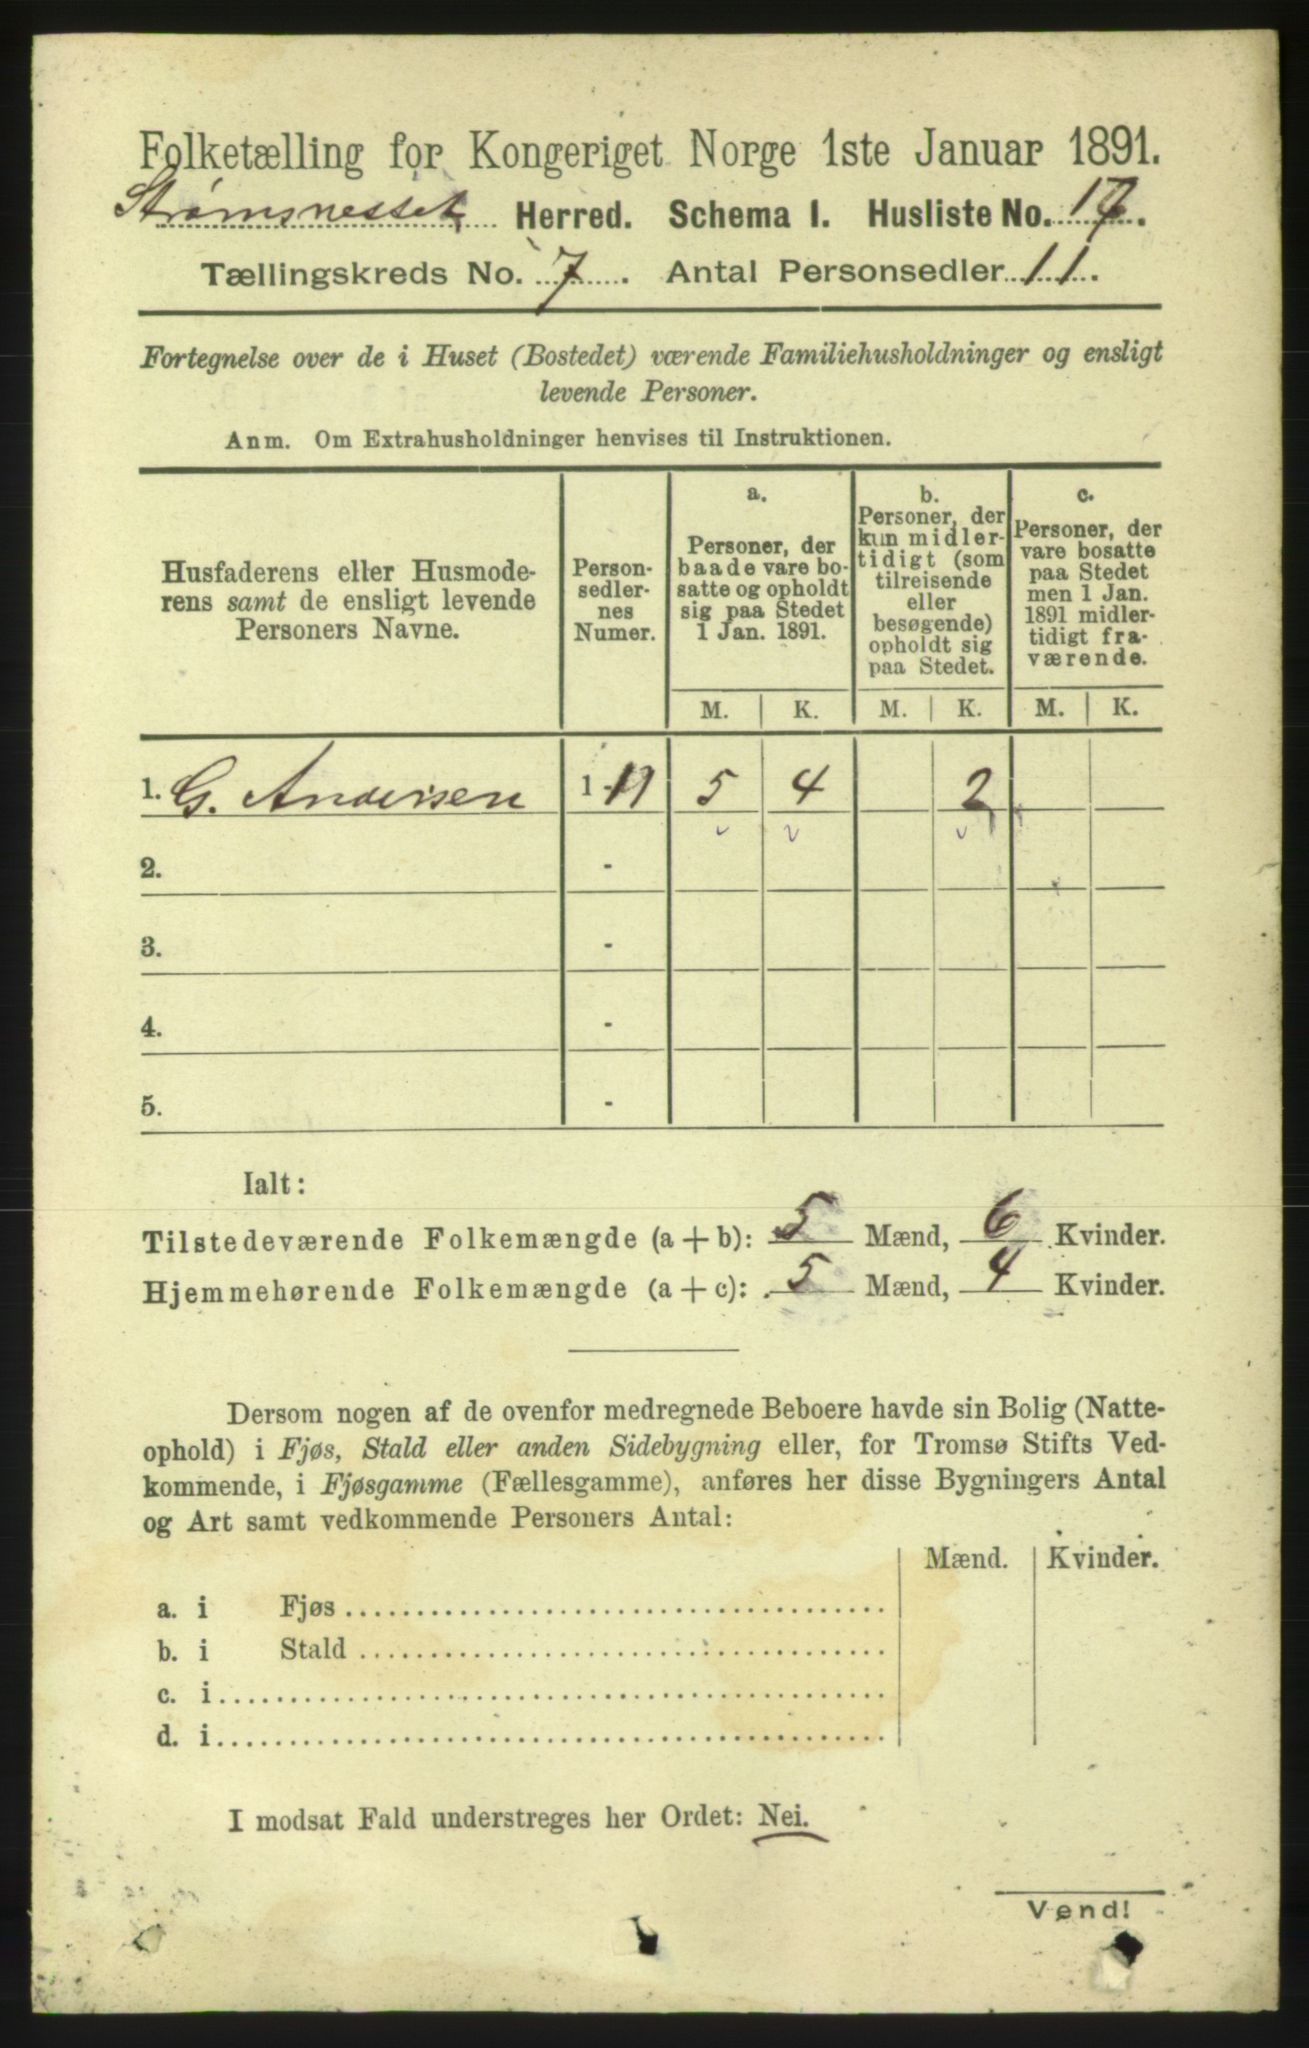 Folketælling for Kongeriget Norge 1ste Januar 1891.
Strømsnesset Herred. Schema I. Husliste No. 17.
Tællingskreds No. 7. Antal Personsedler 11.
Fortegnelse over de i Huset (Bostedet) værende Familiehusholdninger og ensligt
levende Personer.
Anm. Om Extrahusholdninger henvises til Instruktionen.
Husfaderens eller Husmode-
rens samt de ensligt levende
Personers Navne.
Person-
sedler-
nes
Numer.
a.
Personer, der
baade vare bo-
satte og opholdt
sig paa Stedet
1 Jan. 1891.
b.
Personer, der
kun midler-
tidigt (som
tilreisende
eller
besøgende)
opholdt sig
paa Stedet.
c.
Personer, der
vare bosatte
paa Stedet
men 1 Jan.
1891 midler-
tidigt fra-
værende.
M. K. M. K. M. K.
1. G. Andersen 1 - 11 5 4 2
2. -
3. -
4. -
5. -
Ialt:
Tilstedeværende Folkemængde (a + b): 5 Mænd, 6 Kvinder.
Hjemmehørende Folkemængde (a + c): 5 Mænd, 4 Kvinder.
Dersom nogen af de ovenfor medregnede Beboere havde sin Bolig (Natte-
ophold) i Fjøs, Stald eller anden Sidebygning eller, for Tromsø Stifts Ved-
kommende, i Fjøsgamme (Fællesgamme), anføres her disse Bygningers Antal
og Art samt vedkommende Personers Antal:
Mænd. Kvinder.
a. i Fjøs
b. i Stald
c. i
d. i
I modsat Fald understreges her Ordet: Nei.
Vend!